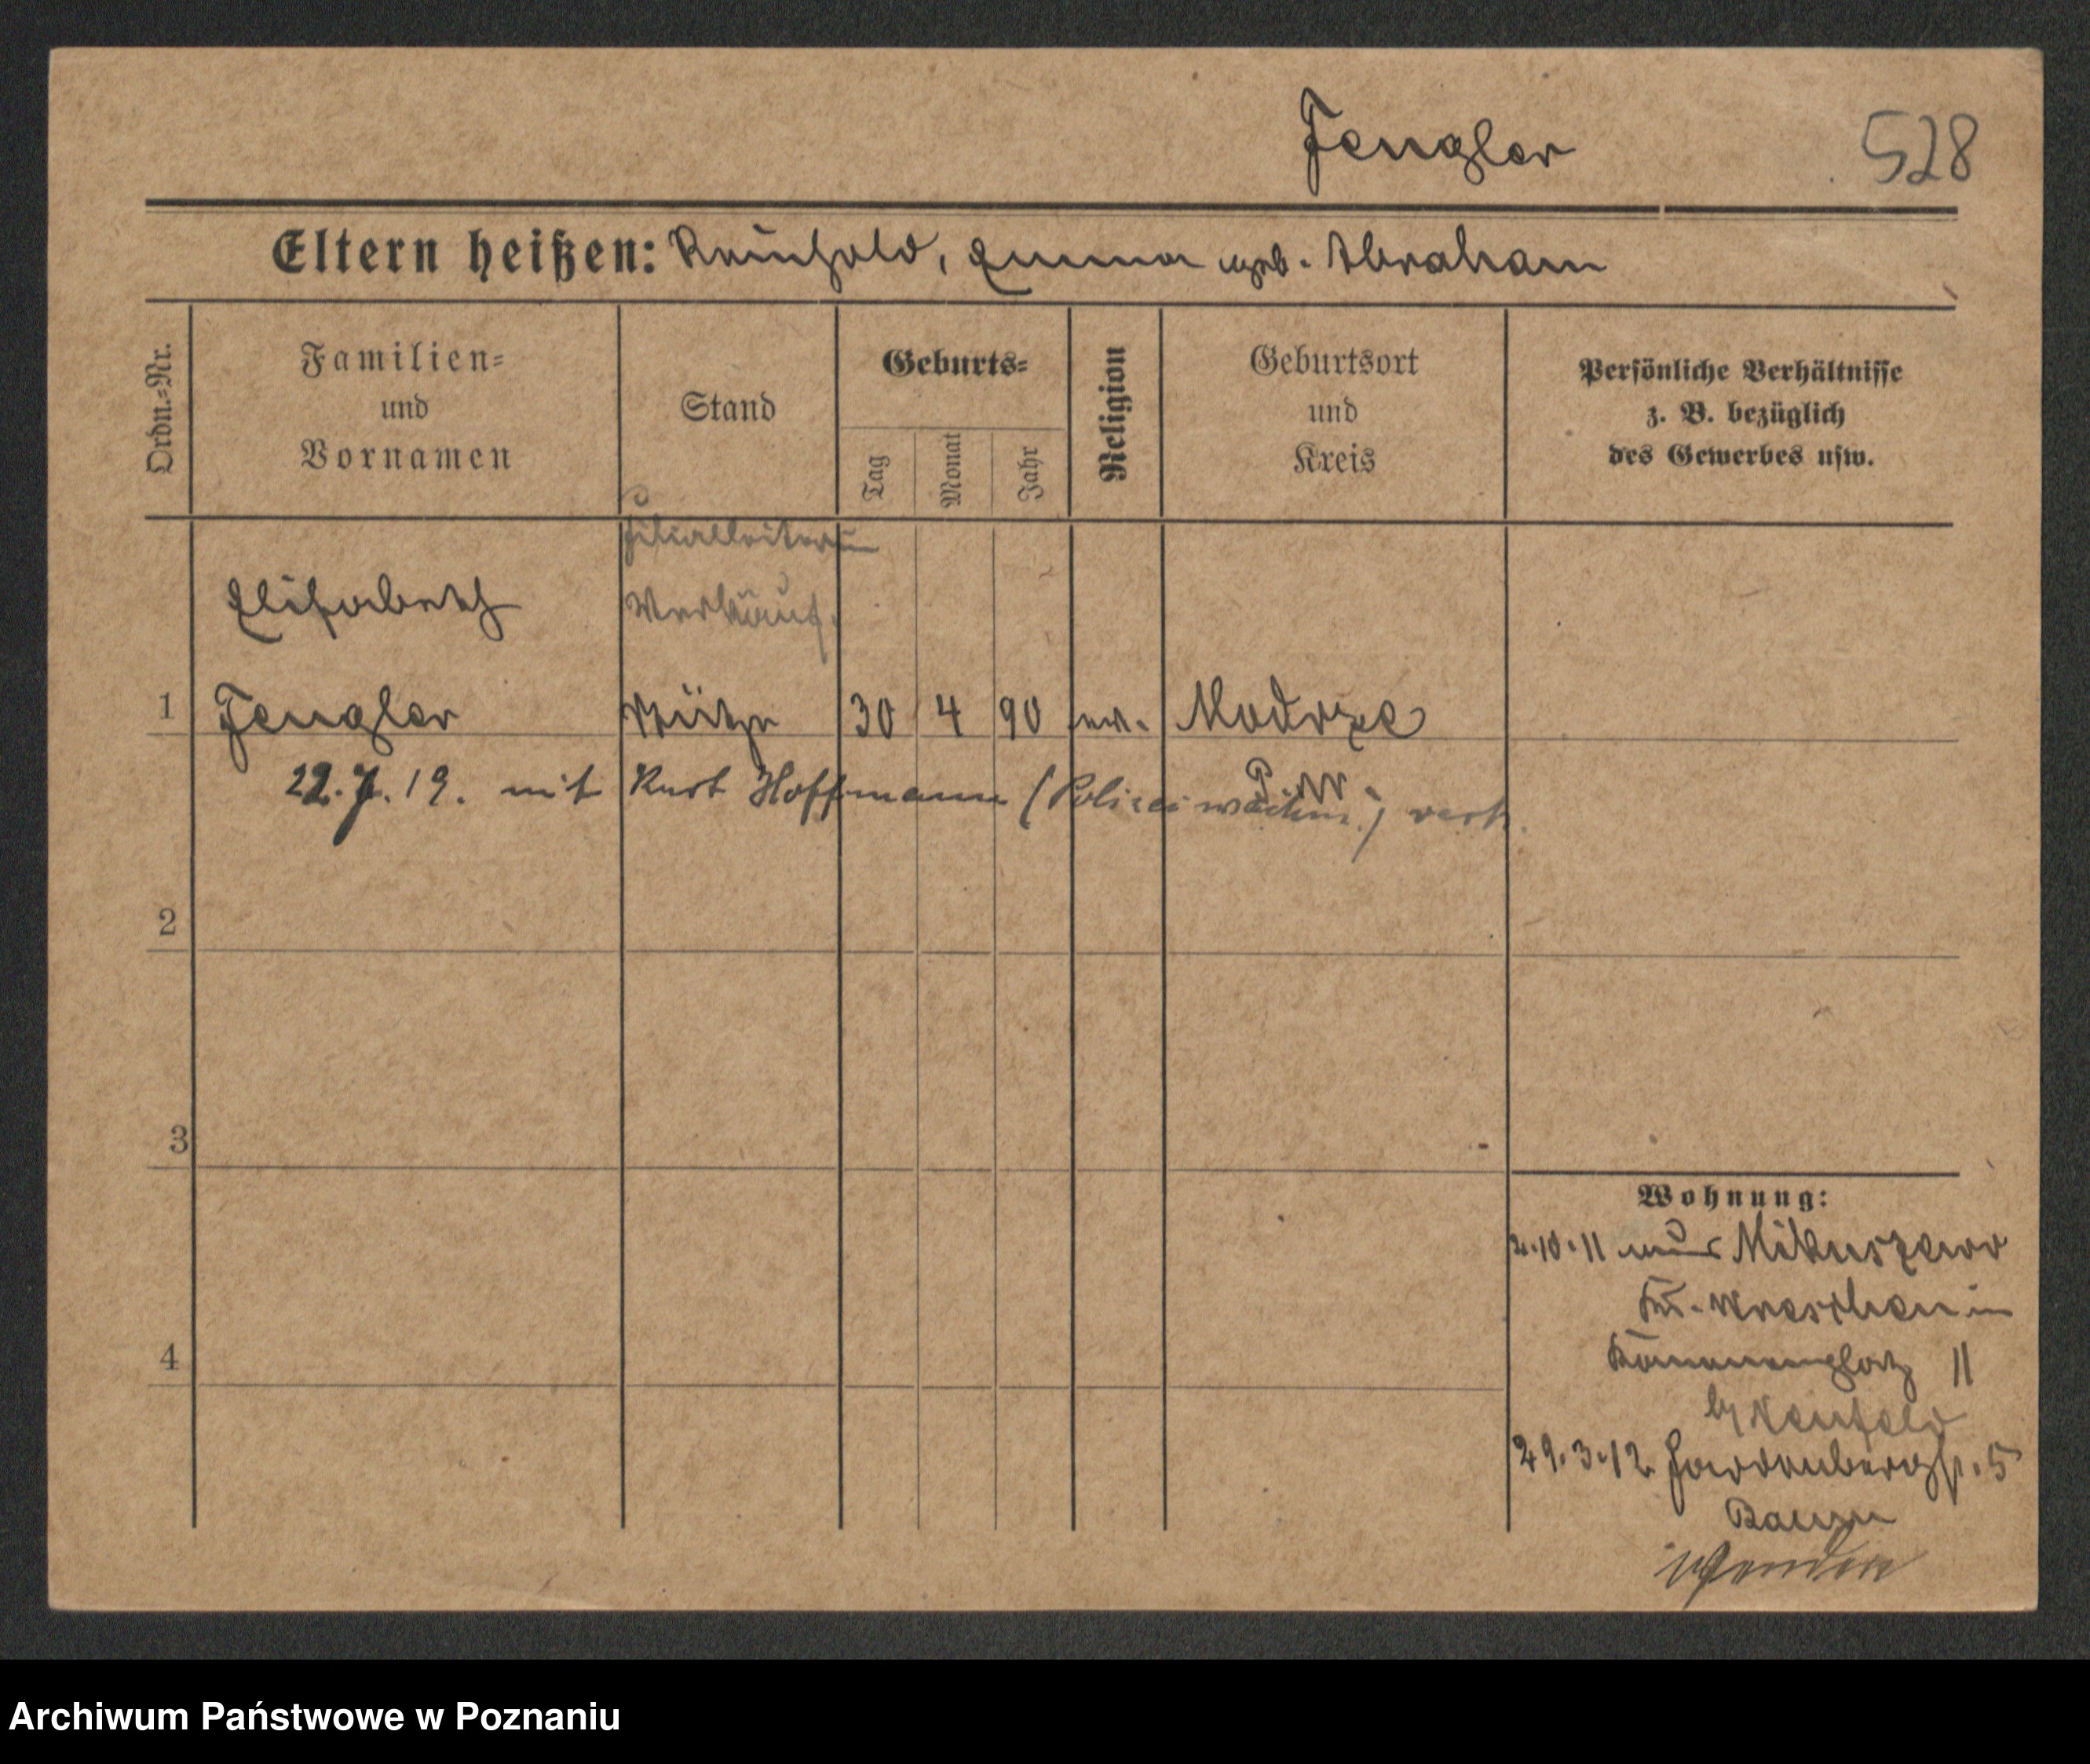 Fengler 528
Eltern heißen: Reinhold, Emma geb. Abraham
Ordn.-Nr.
Familien-
und
Vornamen
Stand
Geburts-
Tag
Monat
Jahr
Religion
Geburtsort
und
Kreis
Persönliche Verhältnisse
z. B. bezüglich
des Gewerbes usw.
Filialleiterin
Elisabeth Verkäuf.
1 Fengler Stütze 30 4 90 ev. Modrze
P. W.
22.7.19. mit Kurt Hoffmann (Polizeiwachtm.) verh.
2
3
4
Wohnung:
2.10.11 aus Mikuszewo
Kr. Wreschen in
11
by Neufeld
29.3.12 Hardenbergstr. 5
Wenden
Archiwum Państwowe w Poznaniu